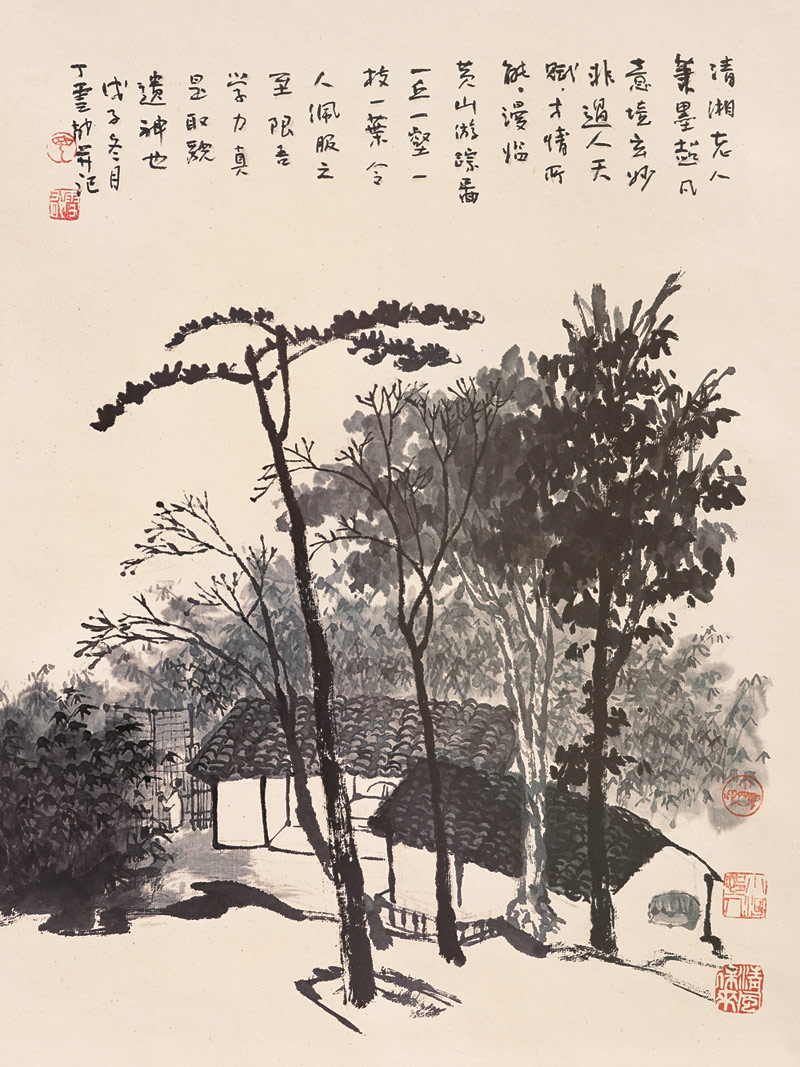 清湘老人
筆墨超凡
意境玄妙
非過人天
賦、才情所
能、漫臨
黄山游踪畫
一丘一壑一
枝一葉令
人佩服之
至限吾
學力真
是取貌
遺神也
戊子冬月
丁雲并記